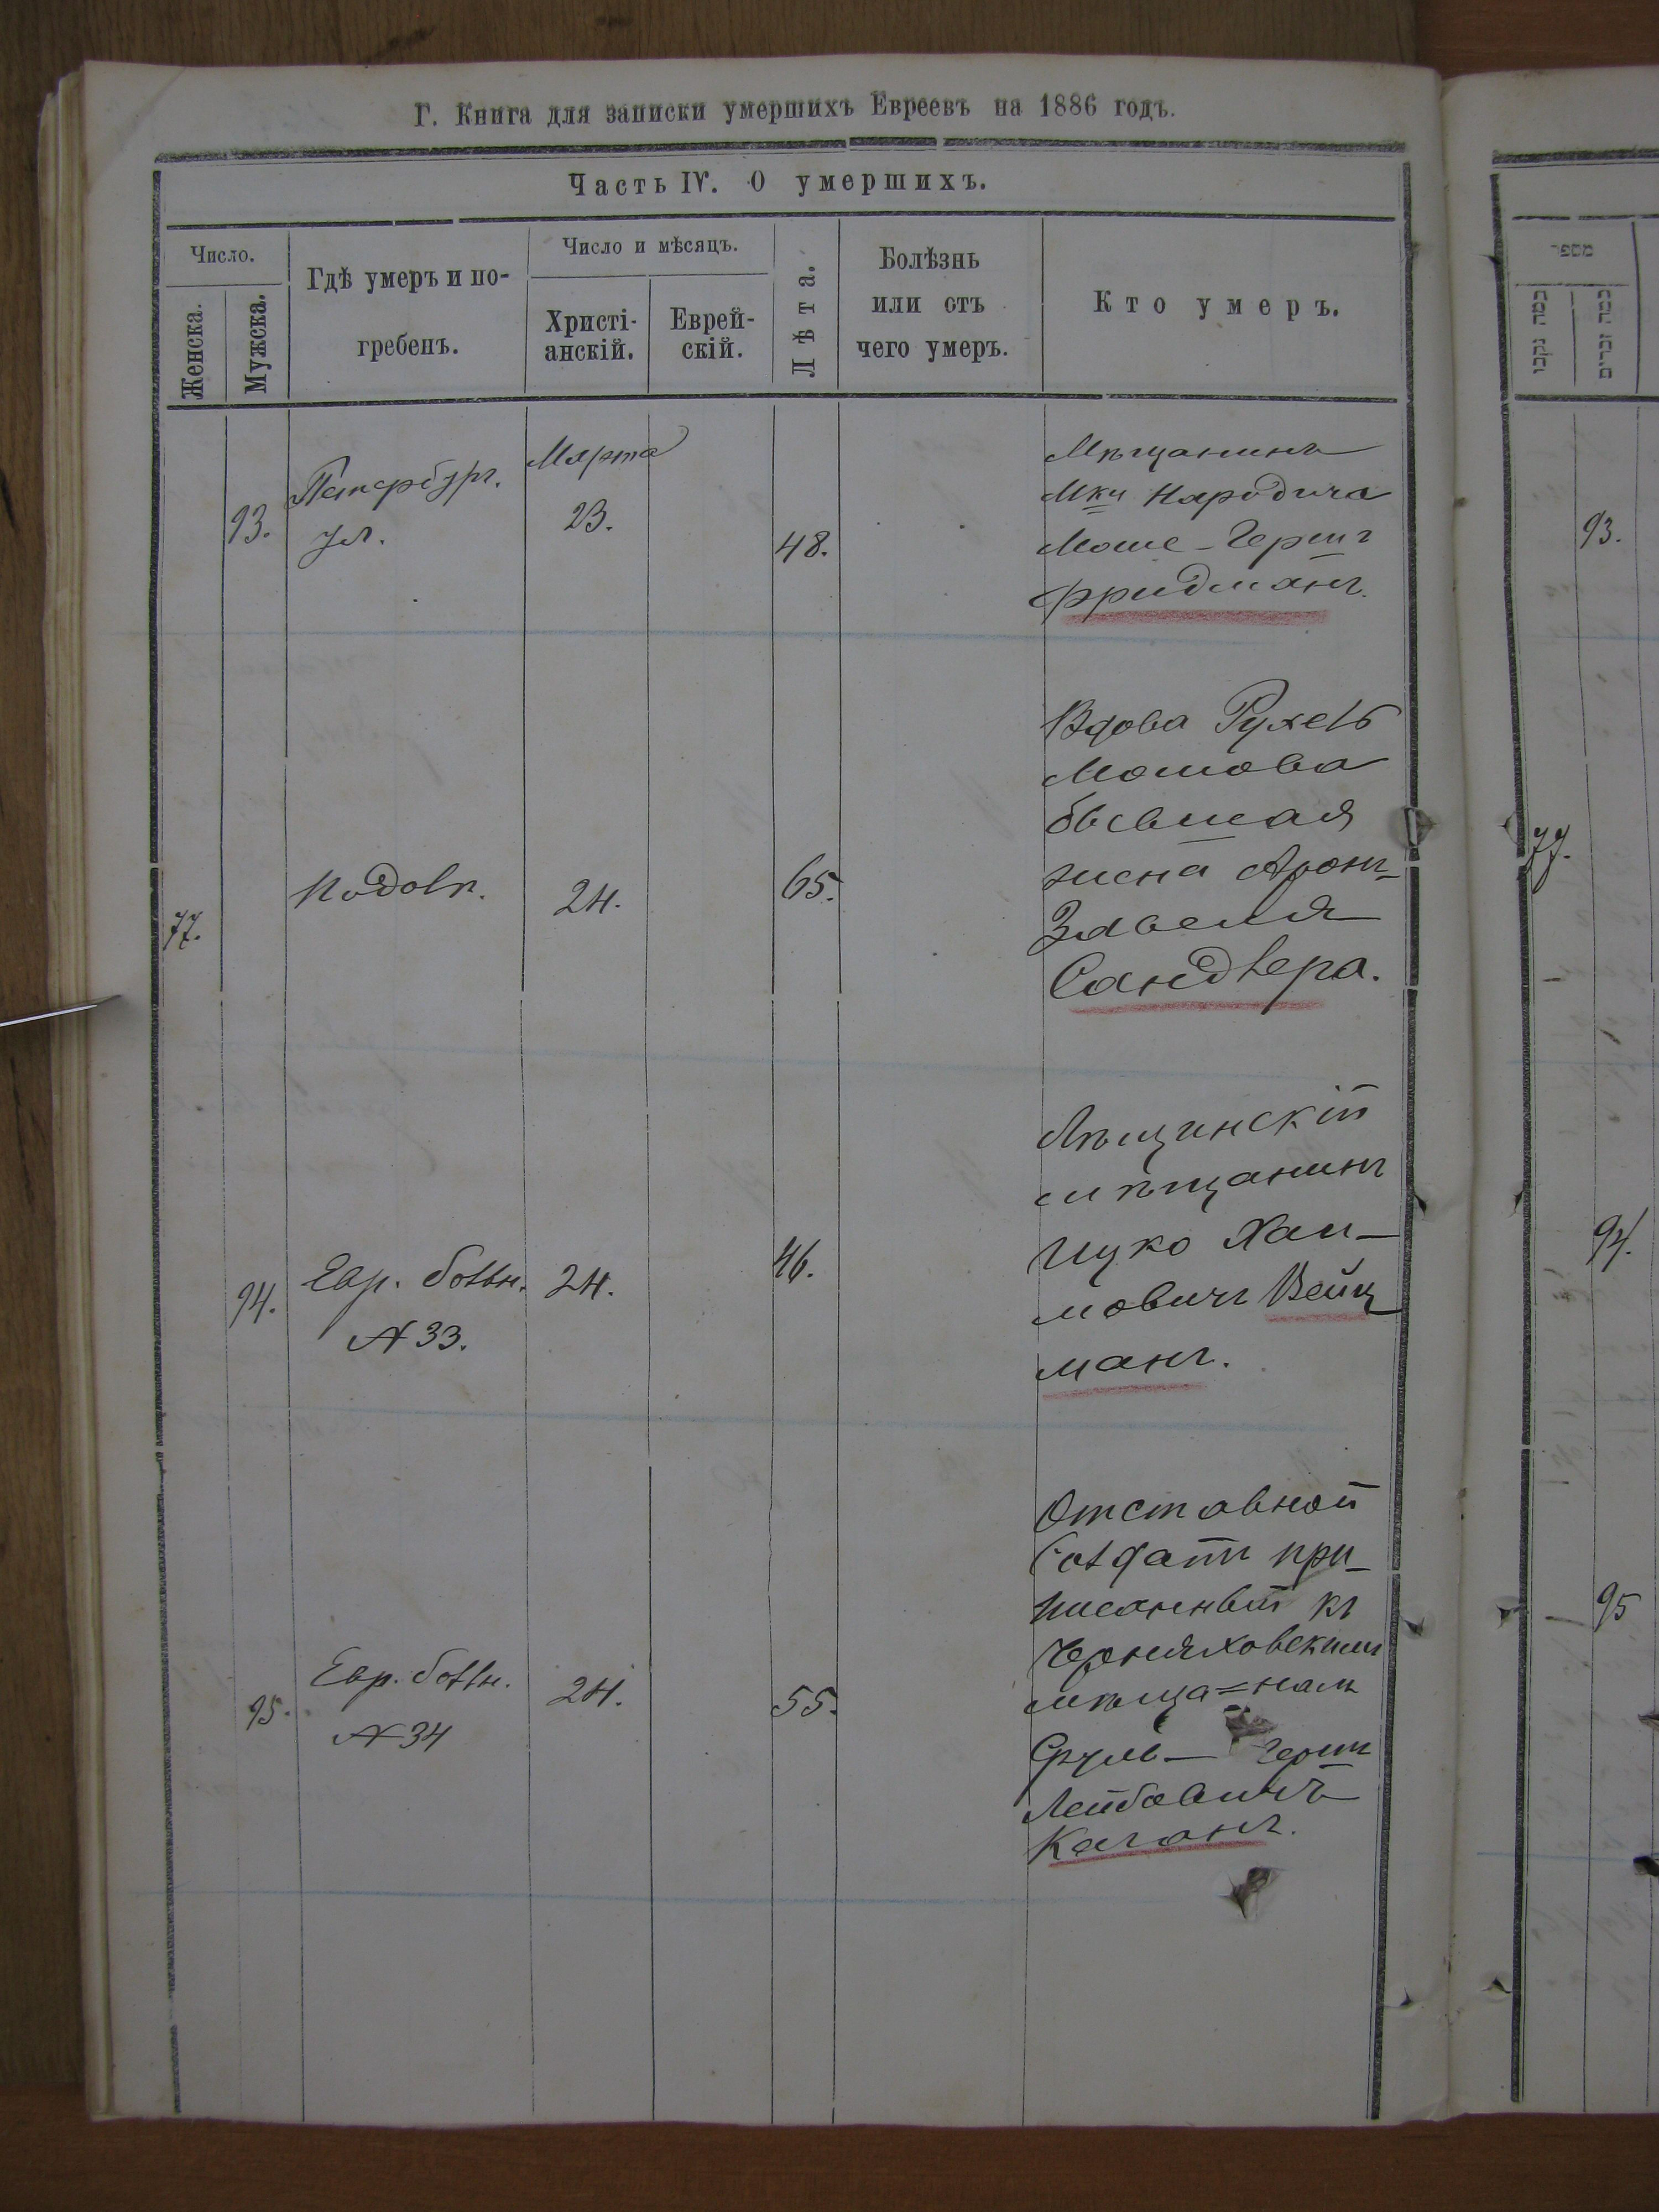 Г. Книга для записки умершихъ Евреевъ на 1886 годъ.
Часть IV. О умершихъ.
Число.
Женска.
Мужска.
Гдѣ умеръ и по-
гребенъ.
Число и мѣсяцъ.
Христі-
анскій.
Еврей-
скій.
Лѣта.
Болѣзнь
или отъ
чего умеръ.
Кто умеръ.
93.
Петербург.
ул.
Марта
23.
48.
Мѣщанинъ
Мки Народича
Моше-Гершъ
Фридманъ.
77.
Подолъ.
24.
65.
Вдова Рухель
Мошова
бывшая
жена Аронъ-
Сандлера.
94.
Евр. больн.
№ 33.
24.
46.
мѣщанинъ
Ицко Хаи-
мовичъ Вейц
манъ.
95.
Евр. больн.
№ 34
24.
55.
Отставной
Солдатъ при-
писанный къ
Черняховскимъ
мѣща=намъ
Сруль- Гершъ
Лейбовичъ
Каганъ.
כמה נקבו
כמה זכרים
93.
77.
94.
95